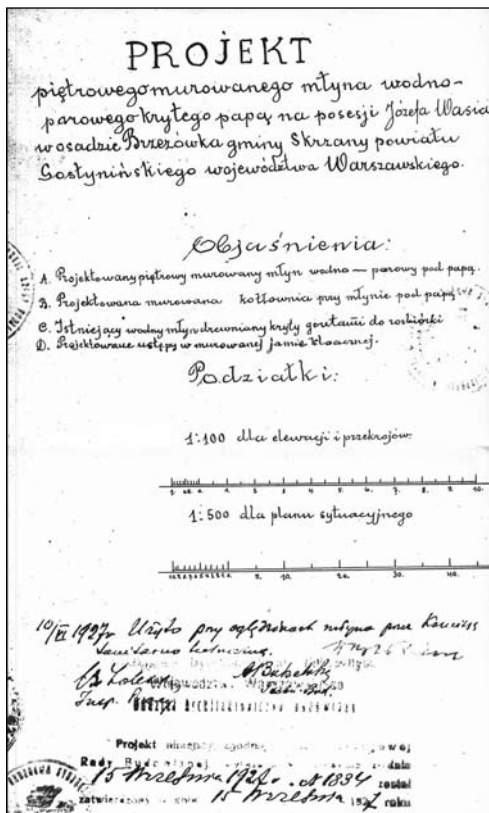 PROJEKT
piętrowego murowanego młyna wodno-
parowego krytego papą na posesji Józefa Wasia
w osadzie Brzezówka gminy Skrzany powiatu
Gostynińskiego województwa Warszawskiego.
Objaśnienia:
A. Projektowany piętrowy murowany młyn wodno — parowy pod papą.
B. Projektowana murowana kotłownia przy młynie pod papą
C. Istniejący wodny młyn drewniany kryty gontami do rozbiórki
D. Projektowane ustępy w murowanej jamie kloacznej.
Podziałki:
1:100 dla elewacji i przekrojów:
1. 0. 1. 2. 3. 4. 5. 6. 7. 8. 9. 10.
1:500 dla planu sytuacyjnego
5. 10. 20. 30. 40.
10/XI 1927r Użyto przy oględzinach młyna przez
Insp.
Projekt
Rady Budowlanej
15 Września 1927r. № 1834 został
zatwierdzony w dniu 15 Września 1927 roku